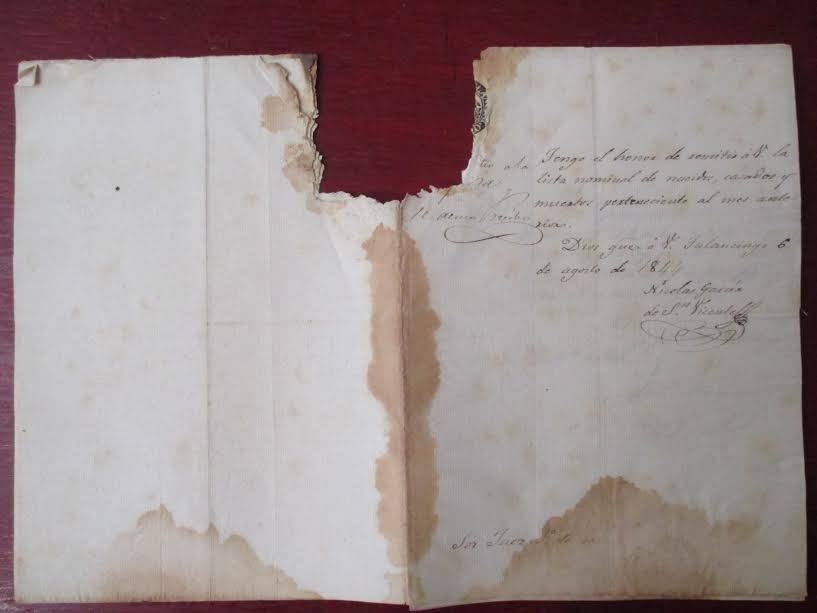 Tengo el honor de remitir á V. la
lista nominal de nacidos, casados y
muertos perteneciente al mes ante-
rior.
Dios gue. á V. Tulancingo 6
de agosto de 1844
Nicolas Garcia
de Sn. Vicente
a la
recibo
Sor. Juez 1o. de